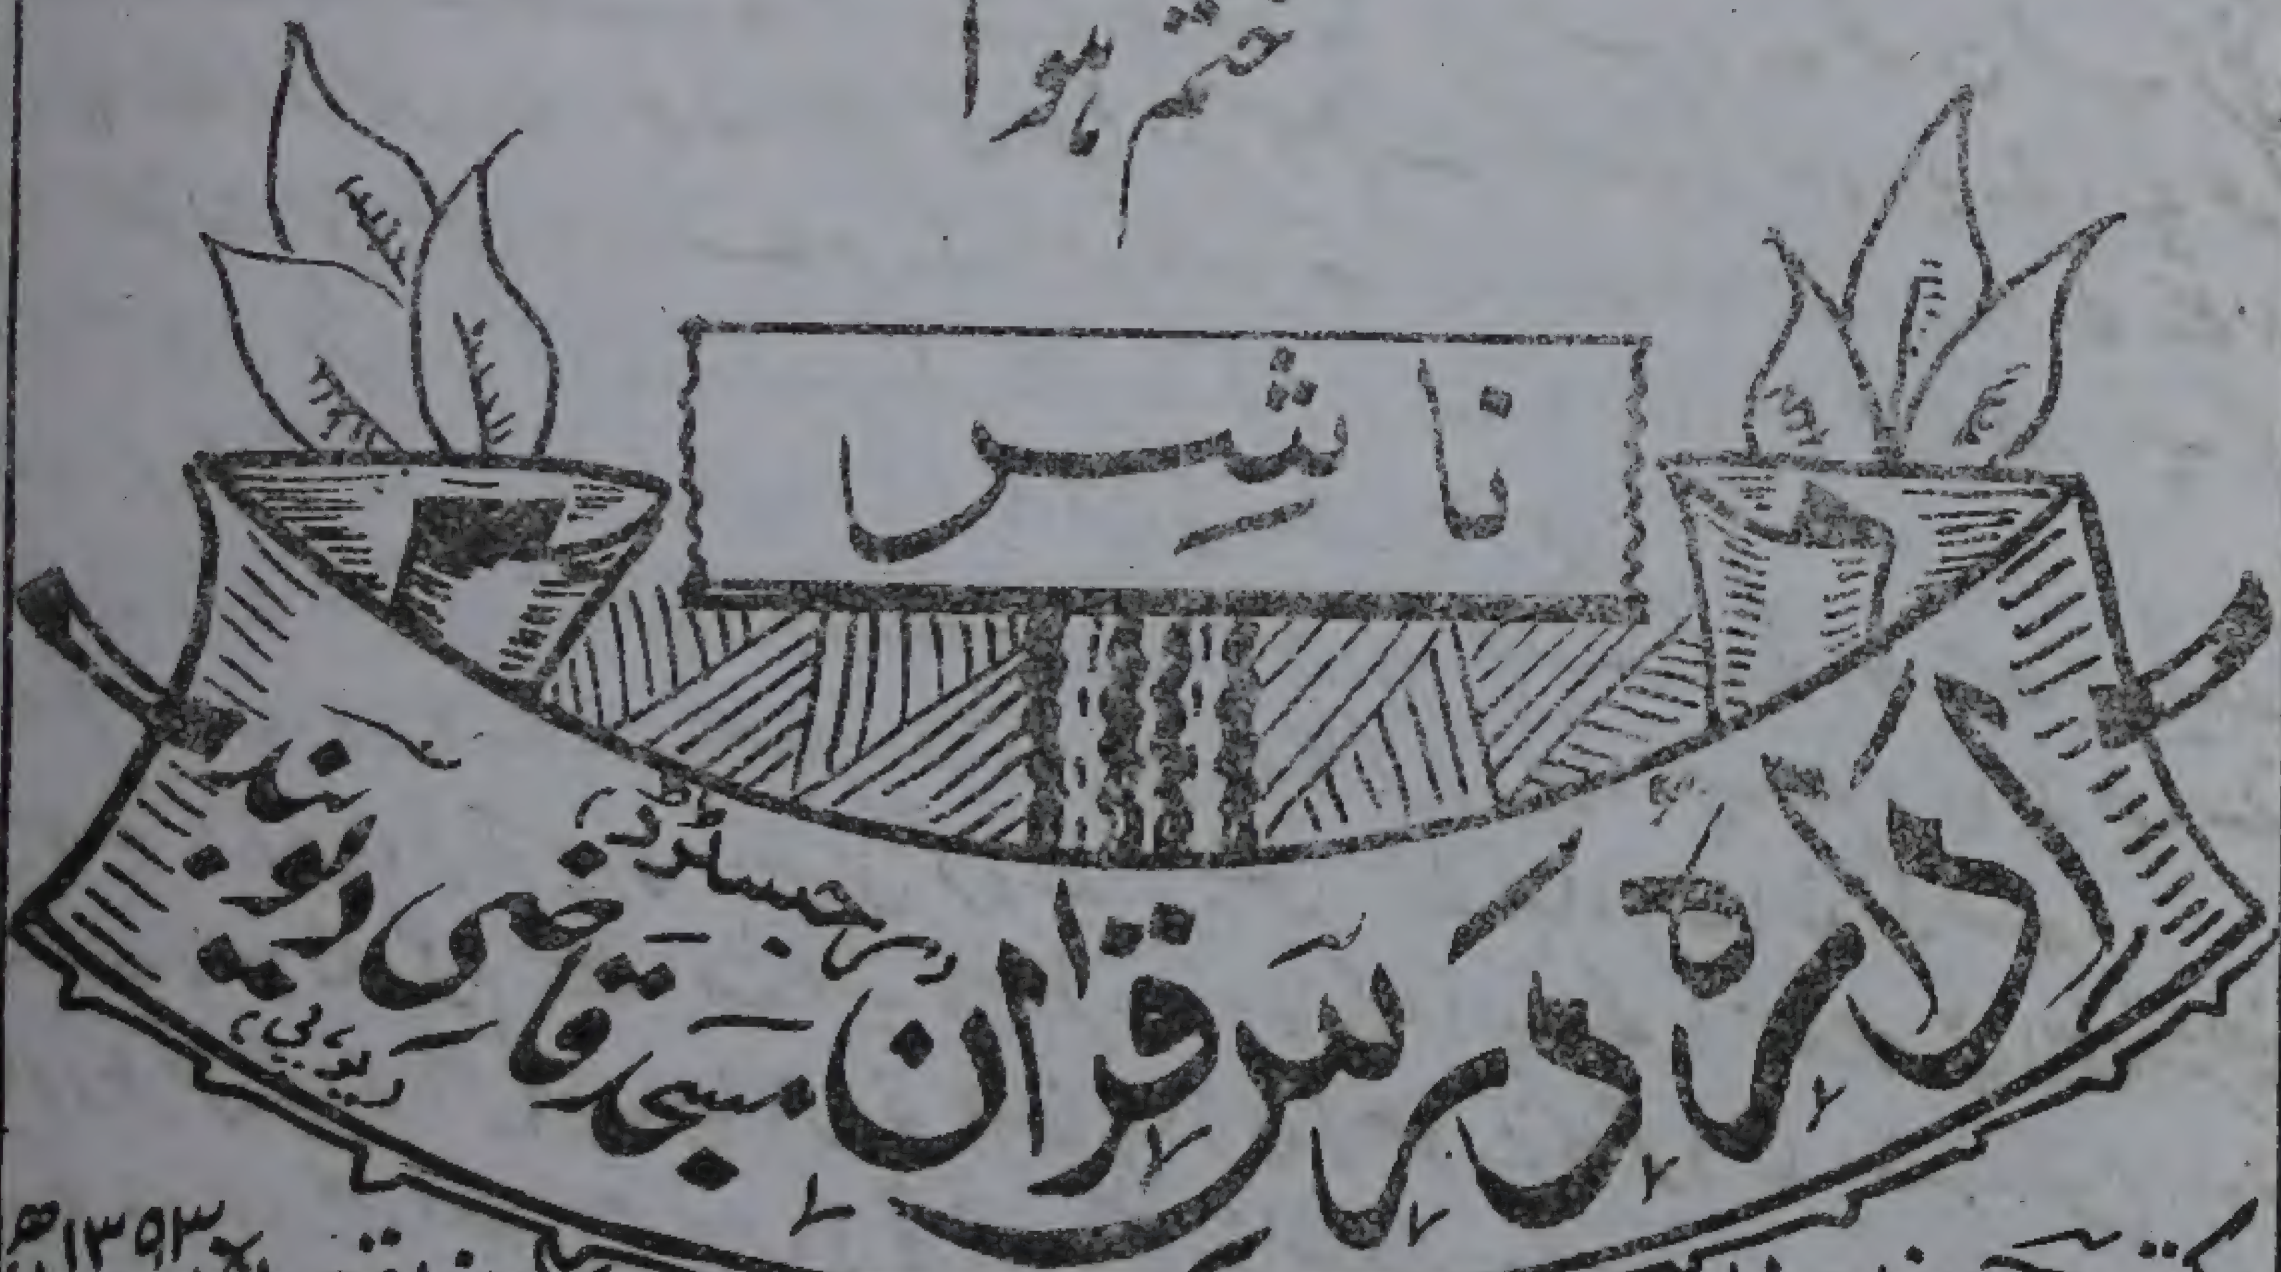 ختم ہوا
ناشِر
ادارہ درسِ قرآن (رجسٹرڈ) مسجد قاضی دیوبند (یوپی)
۱۳۹۳ھ